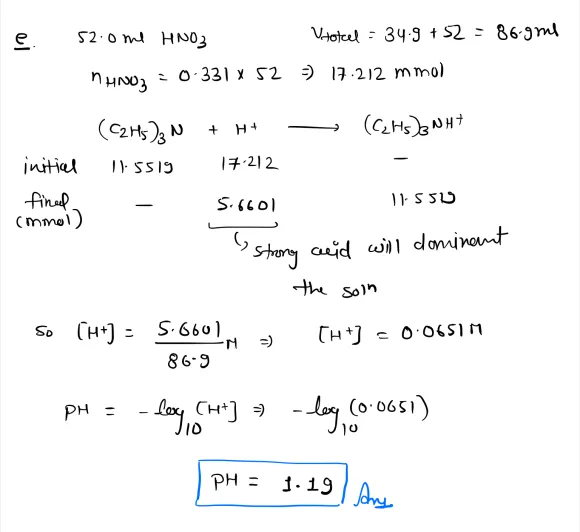 e. 52.0 ml HNO3 Vtotal = 34.9 + 52 = 86.9ml
nHNO3 = 0.331 x 52 ⇒ 17.212 mmol
(C2H5)3N + H+ ⟶ (C2H5)3NH+
initial 11.5519 17.212 –
final (mmol) – 5.6601 11.5519
↳ strong acid will dominant
the soln
so [H+] = 5.6601/86.9 M ⇒ [H+] = 0.0651M
PH = -log10 [H+] ⇒ -log10 (0.0651)
PH = 1.19 Ans